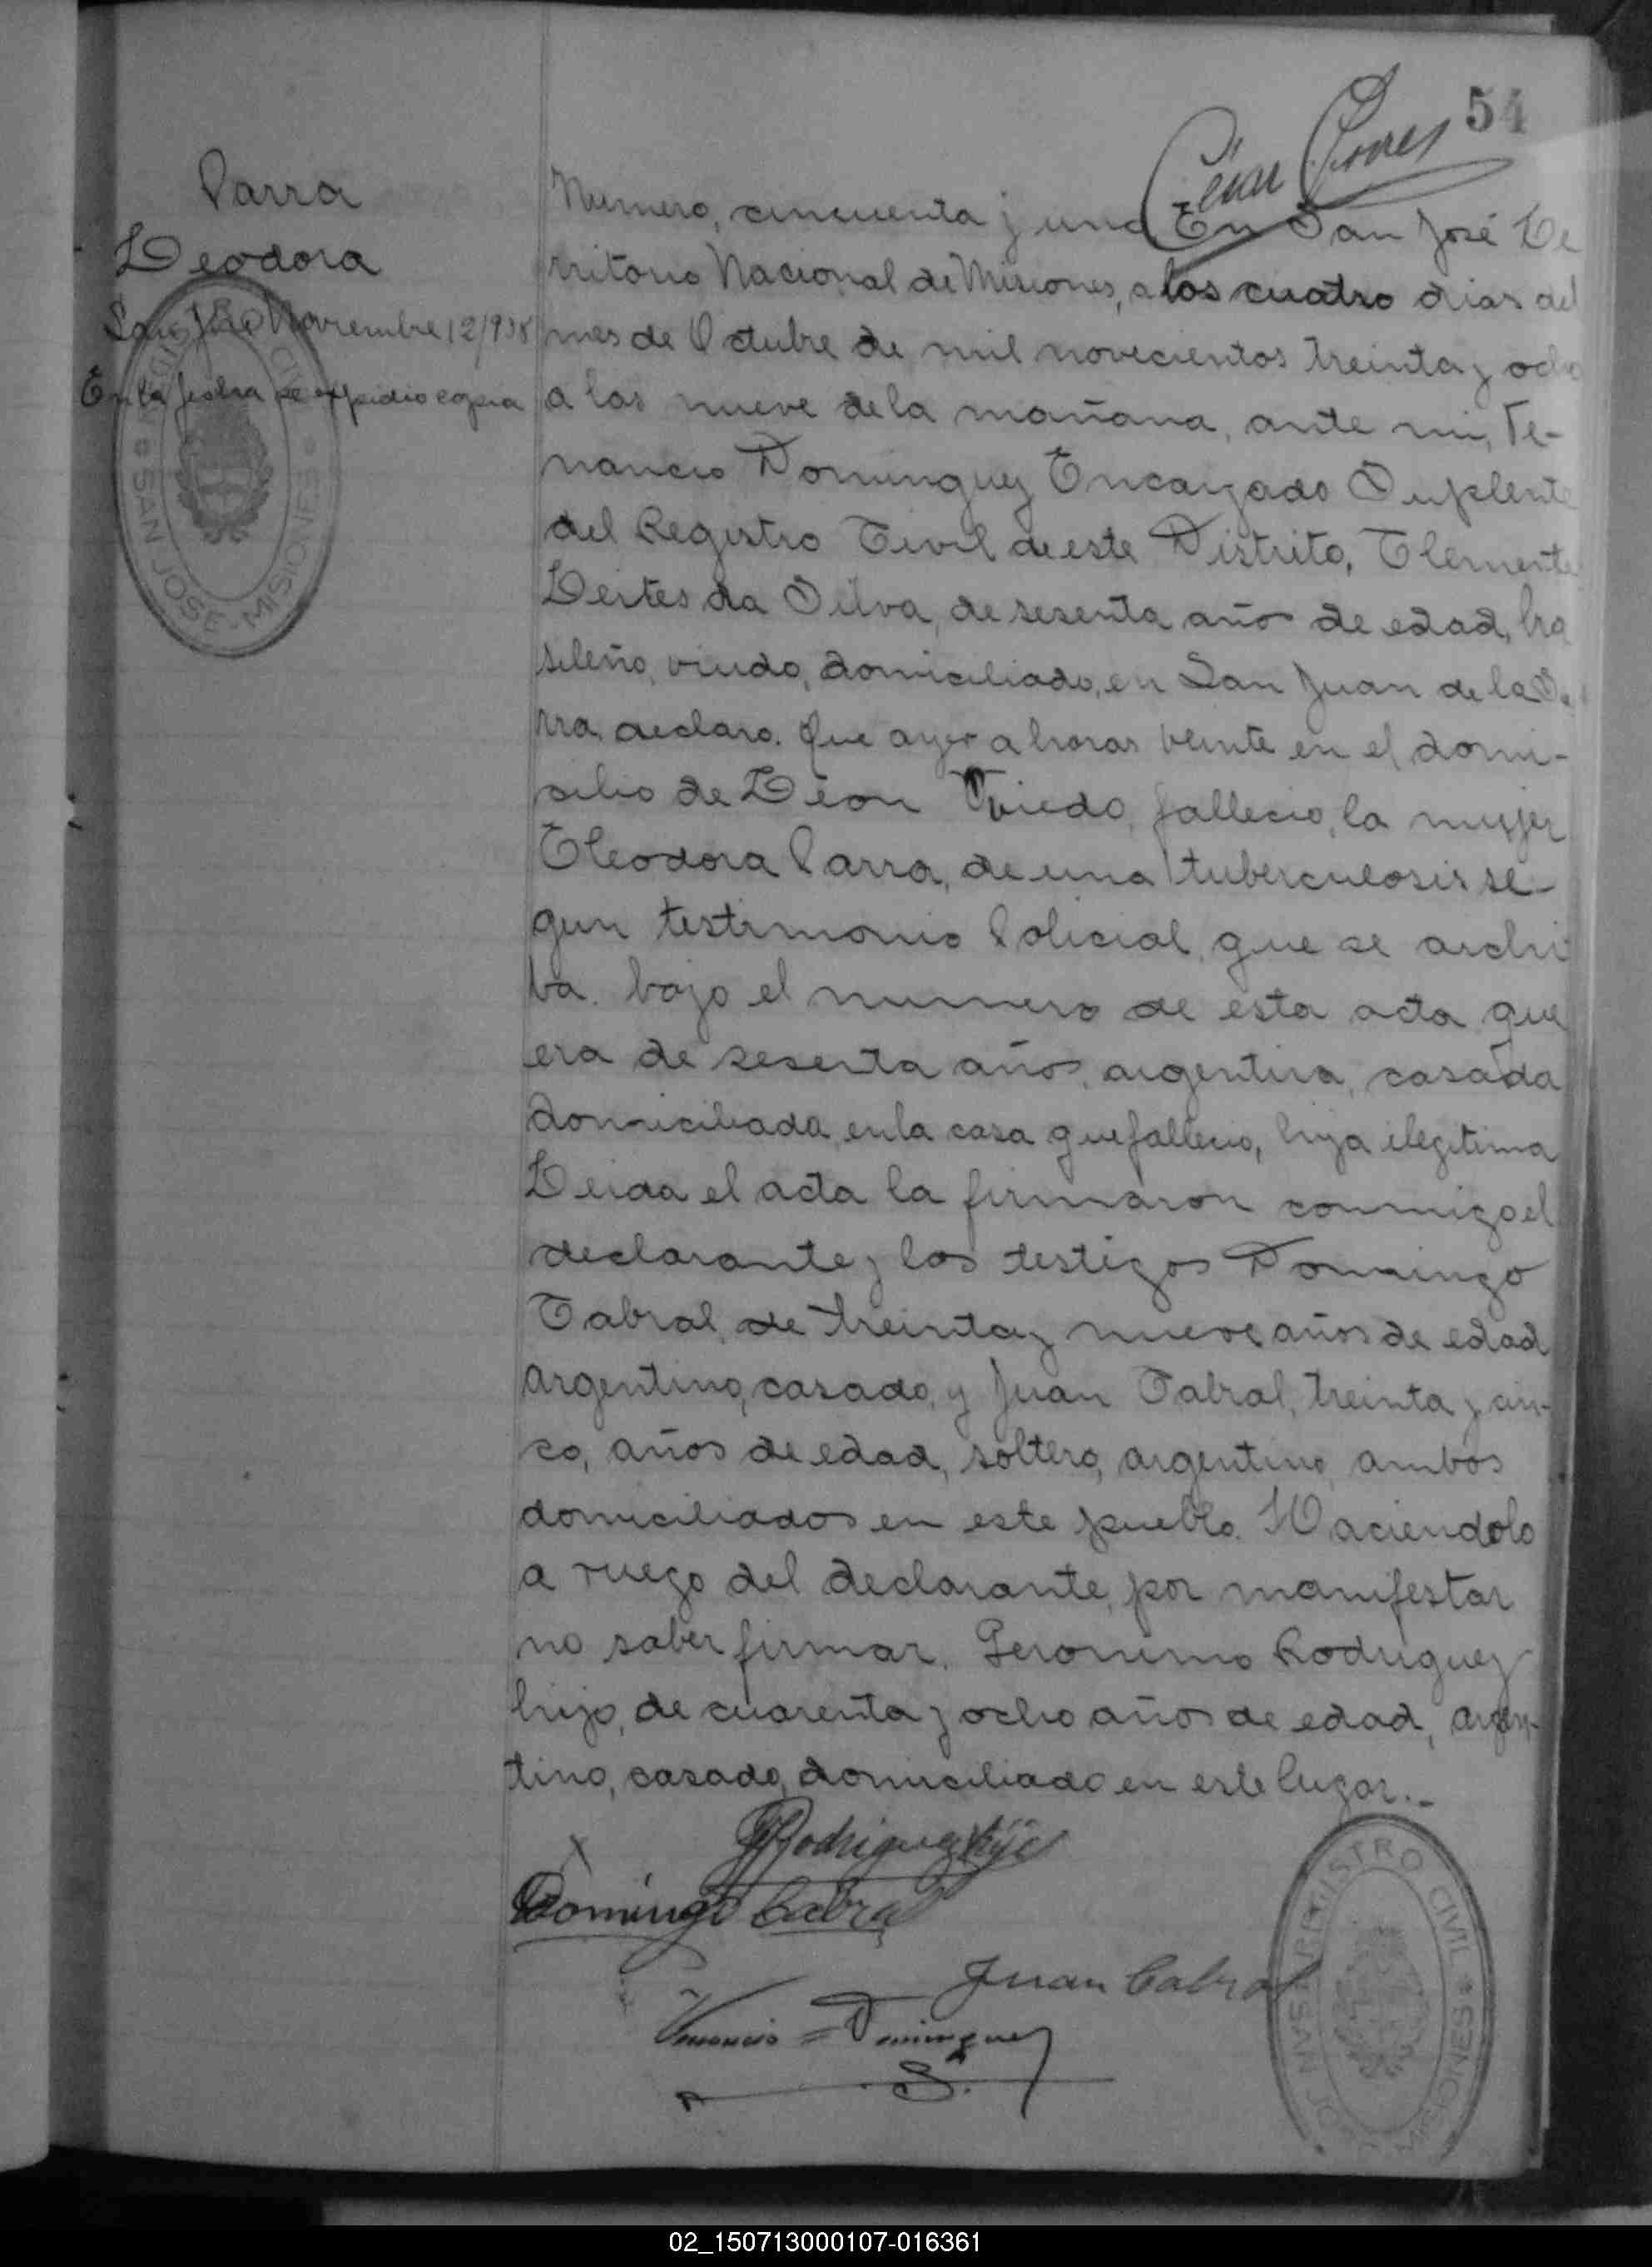 54
Parra
Leodora
San José Noviembre 12/938
En la fecha se expidio copia
REGISTRO CIVIL
SAN JOSE - MISIONES
Numero, cincuenta y uno En San José Te
rritorio Nacional de Misiones, a los cuatro dias del
mes de Octubre de mil novecientos treinta y ocho
a las nueve de la mañana, ante mi, Ve-
nancio Dominguez Encargado Suplente
del Registro Civil de este Distrito, Clemente
Leites da Silva, de sesenta años de edad, bra
sileño, viudo, domiciliado, en San Juan de la Sie
rra, declaro. Que ayer a horas veinte en el domi-
silio de León Oviedo, fallecio, la mujer
Cleodora Parra, de una tuberculosis se-
gun testimonio Policial, que se archi
ba. bajo el numero de esta acta que
era de sesenta años, argentina, casada
domiciliada, en la casa que fallecio, hija ilegitima
Leida el acta la firmaron conmigo el
declarante y los testigos Domingo
Cabral, de treinta y nueve años de edad
argentino, casado, y Juan Cabral, treinta y cin-
co, años de edad, soltero, argentino, ambos
domiciliados en este pueblo. Haciendolo
a ruego del declarante, por manifestar
no saber firmar. Geronimo Rodriguez
hijo, de cuarenta y ocho años de edad, argen-
tino, casado, domiciliado en este lugar.-
G Rodriguez hijo
x
Domingo Cabral
Juan Cabral
Venancio = Dominguez
S.
REGISTRO CIVIL
SAN JOSE MISIONES
02_150713000107-016361